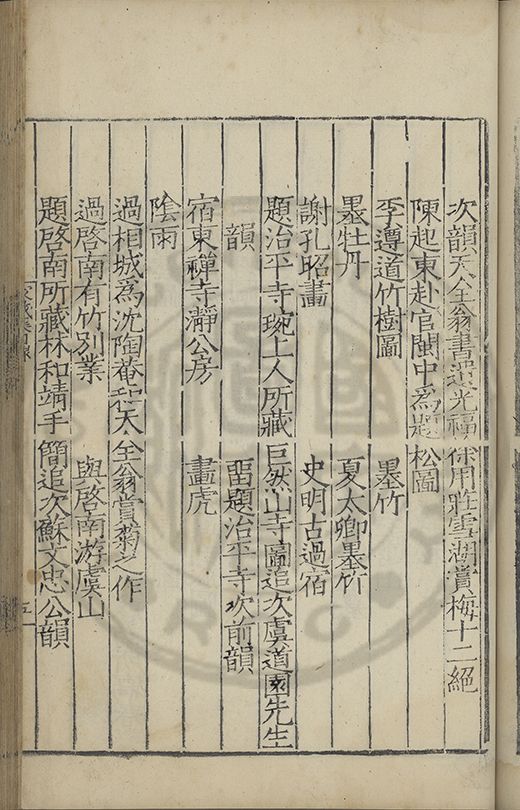 次韻天全翁書遺光福 併用莊雪湖賞梅十二絕
陳起東赴官閩中為題松圖
李遵道竹樹圖 墨竹
墨牡丹 夏太卿墨竹
謝孔昭畫 史明古過宿
題治平寺琬上人所藏巨然山寺圖追次虞道園先生
韻 畱題治平寺次前韻
宿東禪寺瀞公房 畫虎
陰雨
過相城為沈陶菴和天全翁賞菊之作
過啓南有竹別業 與啓南游虞山
題啓南所藏林和靖手簡追次蘇文忠公韻